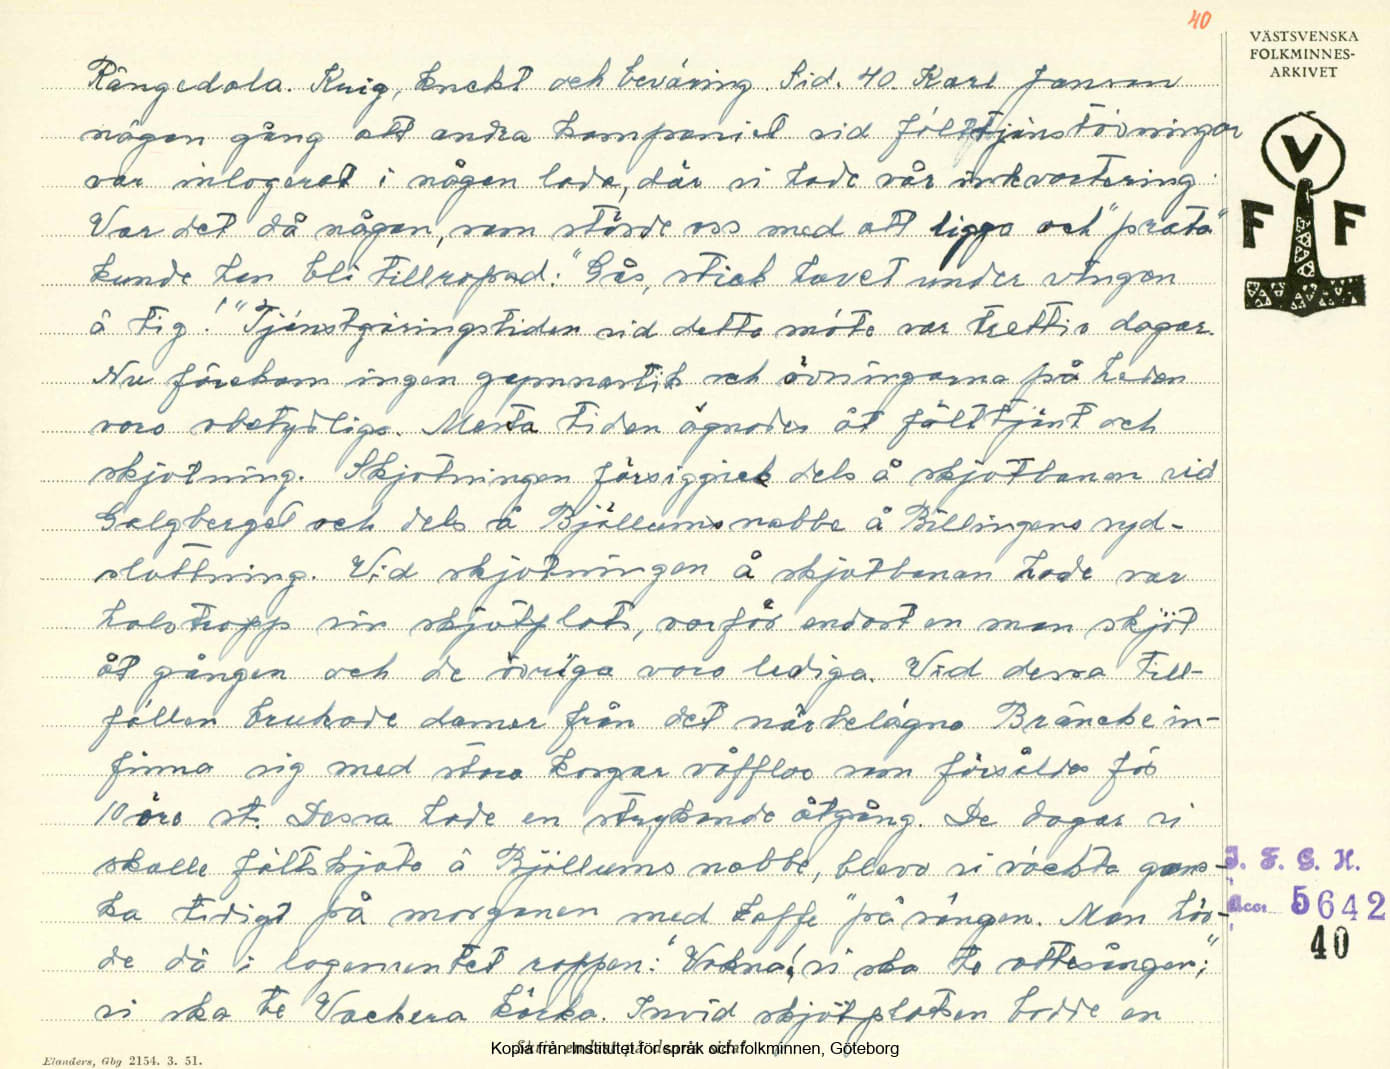 40
VÄSTSVENSKA
FOLKMINNES-
ARKIVET
V
F F
Rångedala. Krig, knekt och beväring. Sid. 40. Karl Janson
någon gång att andra kompaniet vid fälttjänstövningar
var inlogerat i någon lada, där vi hade vår inkvartering.
Var det då någon, som störde oss med att ligga och "prata"
kunde han bli tillropad: "Gås, stick havet under vingen
å tig!" Tjänstgöringstiden vid detta möte var trettio dagar.
Nu förekom ingen gymnastik och övningarna på heden
voro obetydliga. Mesta tiden ägnades åt fälttjänst och
skjutning. Skjutningen försiggick dels å skjutbanan vid
Galgberget och dels å Bjällums nabbe å Billingens syd-
sluttning. Vid skjutningen å skjutbanan hade var
halvtropp sin skjutplats, varför endast en man skjöt
åt gången och de övriga voro lediga. Vid dessa till-
fällen brukade damer från det närbelägna Bräncke in-
finna sig med stora korgar våfflor som försåldes för
10 öre st. Dessa hade en strykande åtgång. De dagar vi
skulle fältskjuta å Bjällums nabbe, blevo vi väckta gans-
ka tidigt på morgonen med kaffe "på sängen. Man hör-
de då i logementet roppen: "Vakna! vi ska te ottesången";
vi ska te Vackera kärka. Invid skjutplatsen bodde en
J. F. G. H.
Acc. 5642
40
Skriv endast på denna sida!
Kopia från Institutet för språk och folkminnen, Göteborg
Elanders, Gbg 2154. 3. 51.